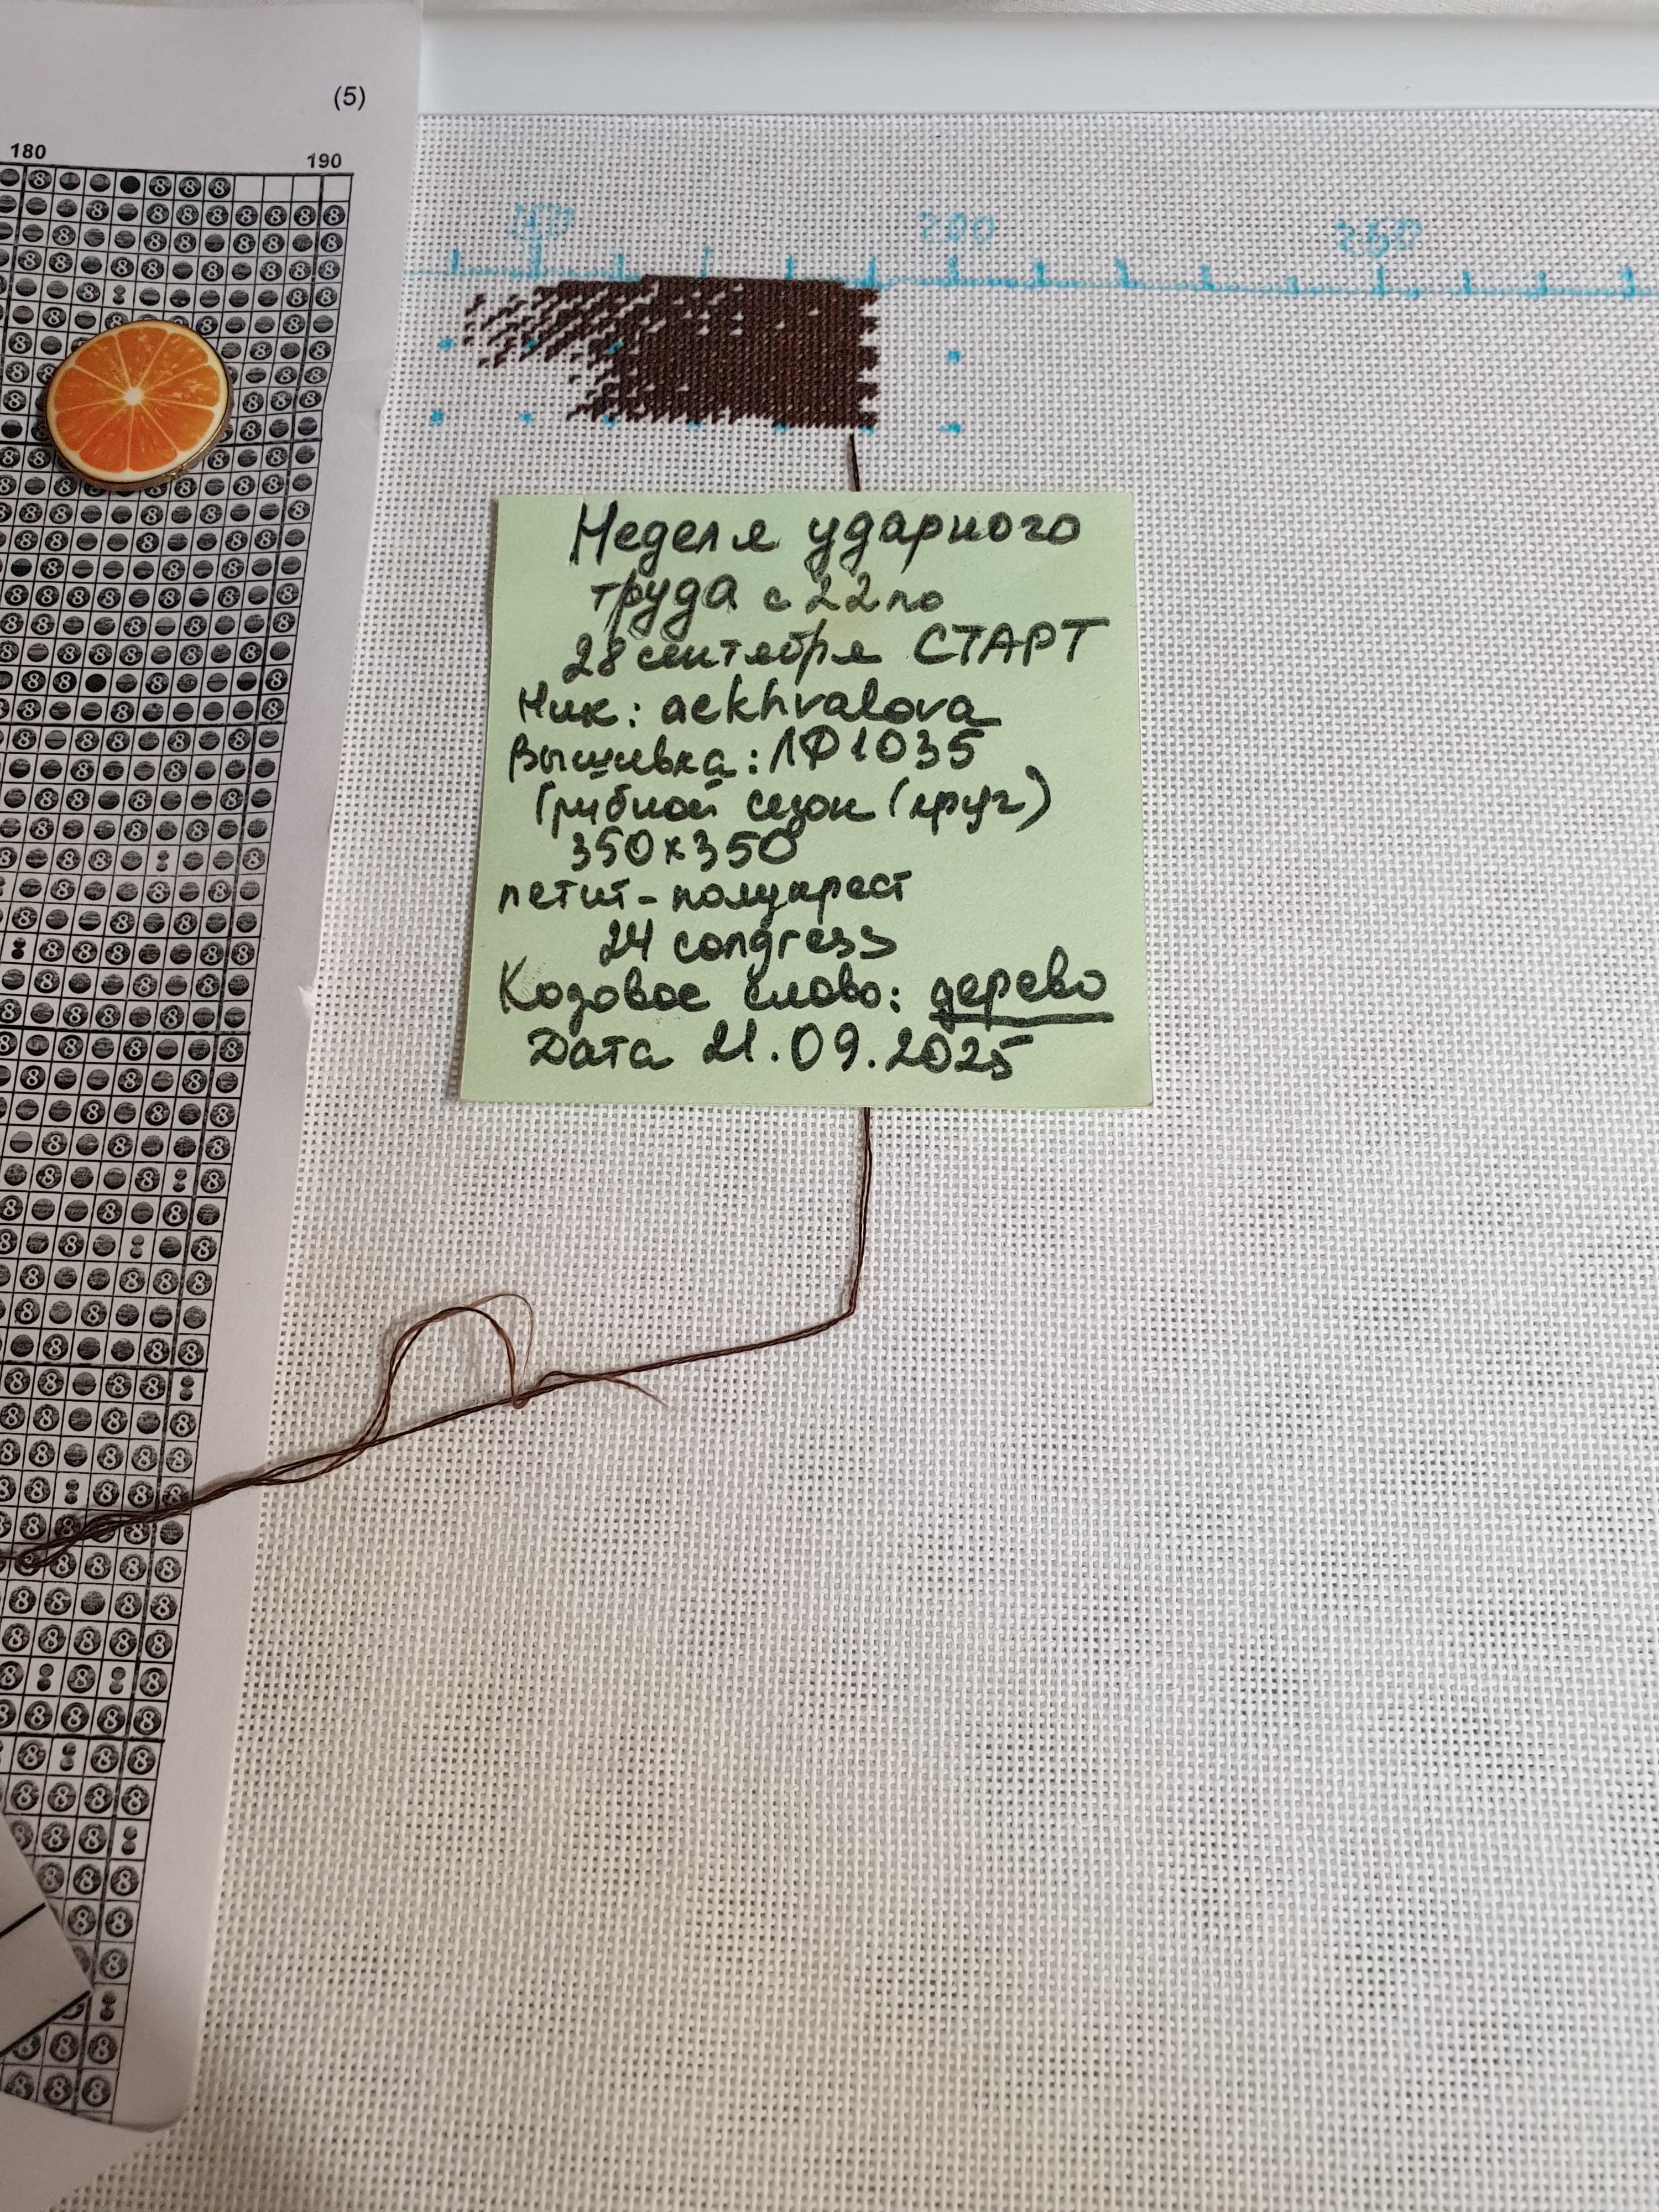 (5)
180 190
200
Неделя ударного
труда с 22 по
28 сентября СТАРТ
Ник: aekhvalova
Вышивка: ЛФ1035
Грибной сезон (круг)
350х350
петит-полукрест
24 congress
Кодовое слово: дерево
Дата 21.09.2025